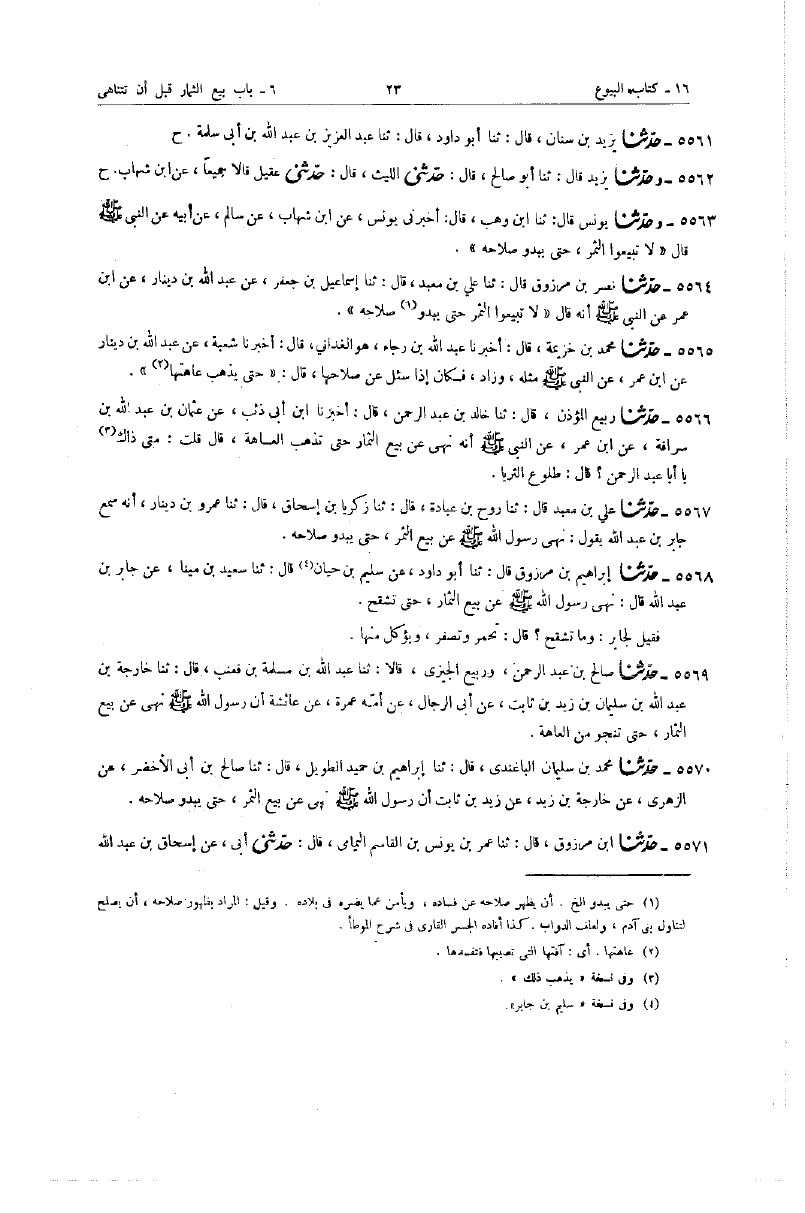 ١٦ - كتاب البيوع ٢٣ ٦ - باب بيع الثمار قبل أن تتناهى
٥٥٦١ - حدثنا يزيد بن سنان ، قال : ثنا أبو داود ، قال : ثنا عبد العزيز بن عبد الله بن أبى سلمة . ح
٥٥٦٢ - وحدثنا يزيد قال : ثنا أبو صالح ، قال : حدثنى الليث ، قال : حدثنى عقيل قالا جميعاً ، عن ابن شهاب. ح
٥٥٦٣ - وحدثنا يونس قال: ثنا ابن وهب ، قال: أخبرنى يونس ، عن ابن شهاب ، عن سالم ، عن أبيه عن النبى ﷺ
قال « لا تبيعوا الثمر ، حتى يبدو صلاحه » .
٥٥٦٤ - حدثنا نصر بن مرزوق قال : ثنا علي بن معبد ، قال : ثنا إسماعيل بن جعفر ، عن عبد الله بن دينار ، عن ابن
عمر عن النبى ﷺ أنه قال « لا تبيعوا الثمر حتى يبدو(١) صلاحه » .
٥٥٦٥ - حدثنا محمد بن خزيمة ، قال : أخبرنا عبد الله بن رجاء ، هو الغدانى، قال : أخبرنا شعبة ، عن عبد الله بن دينار
عن ابن عمر ، عن النبى ﷺ مثله ، وزاد ، فكان إذا سئل عن صلاحها ، قال : « حتى يذهب عاهتها(٢) » .
٥٥٦٦ - حدثنا ربيع المؤذن ، قال : ثنا خالد بن عبد الرحمن ، قال : أخبرنا ابن أبى ذئب ، عن عثمان بن عبد الله بن
سراقة ، عن ابن عمر ، عن النبى ﷺ أنه نهى عن بيع الثمار حتى تذهب العاهة ، قال قلت : متى ذاك(٣)
يا أبا عبد الرحمن ؟ قال : طلوع الثريا .
٥٥٦٧ - حدثنا علي بن معبد قال : ثنا روح بن عبادة ، قال : ثنا زكريا بن إسحاق ، قال : ثنا عمرو بن دينار ، أنه سمع
جابر بن عبد الله يقول : نهى رسول الله ﷺ عن بيع الثمر ، حتى يبدو صلاحه .
٥٥٦٨ - حدثنا إبراهيم بن مرزوق قال : ثنا أبو داود ، عن سليم بن حيان(٤) قال : ثنا سعيد بن مينا ، عن جابر بن
عبد الله قال : نهى رسول الله ﷺ عن بيع الثمار ، حتى تشقح .
فقيل لجابر : وما تشقح ؟ قال : تحمر وتصفر ، ويؤكل منها .
٥٥٦٩ - حدثنا صالح بن عبد الرحمن ، وربيع الجيزى ، قالا : ثنا عبد الله بن مسلمة بن قعنب ، قال : ثنا خارجة بن
عبد الله بن سليمان بن زيد بن ثابت ، عن أبى الرجال ، عن أمّه عمرة ، عن عائشة أن رسول الله ﷺ نهى عن بيع
الثمار ، حتى تنجو من العاهة .
٥٥٧٠ - حدثنا محمد بن سليمان الباغندى ، قال : ثنا إبراهيم بن حميد الطويل ، قال : ثنا صالح بن أبى الأخضر ، عن
الزهرى ، عن خارجة بن زيد ، عن زيد بن ثابت أن رسول الله ﷺ نهى عن بيع الثمر ، حتى يبدو صلاحه .
٥٥٧١ - حدثنا ابن مرزوق ، قال : ثنا عمر بن يونس بن القاسم اليمامى ، قال : حدثنى أبى ، عن إسحاق بن عبد الله
(١) حتى يبدو الخ . أن يظهر صلاحه عن فساده ، ويأمن عما يضره فى بلاده . وقيل : المراد بظهور صلاحه ، أن يصلح
لتناول بنى آدم ، ولعلف الدواب . كذا أفاده الجسر القارى فى شرح الموطأ .
(٢) عاهتها . أى : آفتها التى تصيبها فتفسدها .
(٣) وفى نسخة « يذهب ذلك » .
(٤) وفى نسخة « سليم بن جابر».